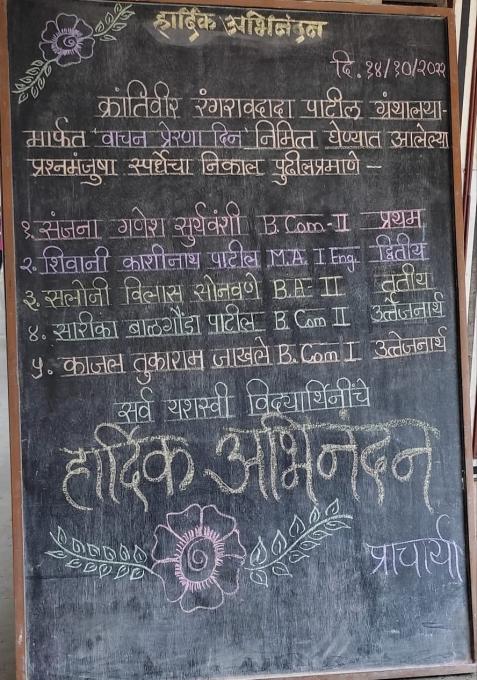 हार्दिक अभिनंदन
दि. १४/१०/२०२२
क्रांतिवीर रंगरावदादा पाटील ग्रंथालया-
मार्फत 'वाचन प्रेरणा दिन' निमित्त घेण्यात आलेल्या
प्रश्नमंजुषा स्पर्धेचा निकाल पुढीलप्रमाणे –
१. संजना गणेश सुर्यवंशी B. Com-II प्रथम
२. शिवानी काशीनाथ पाटील M.A. I Eng. द्वितीय
३. सलोनी विलास सोनवणे B.A- II तृतीय
४. सारीका बाळगौंडा पाटील B. Com II उत्तेजनार्थ
५. काजल तुकाराम जाखले B. Com I उत्तेजनार्थ
सर्व यशस्वी विद्यार्थिनींचे
हार्दिक अभिनंदन
प्राचार्या